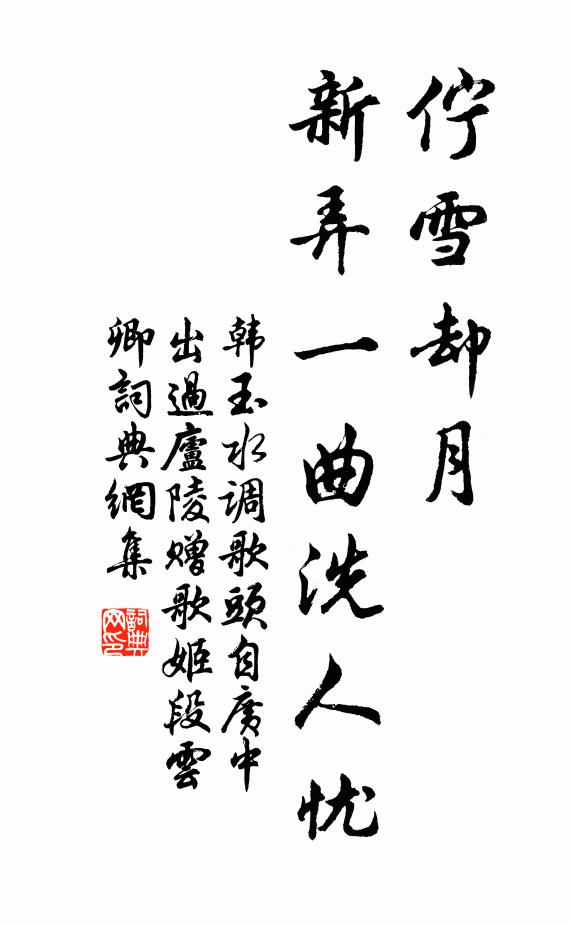 佇雪却月
新弄一曲洗人忧
韩玉水调歌頭自廣中
出過廬陵赠歌姬段雲
卿詞典網集
詞典
网印